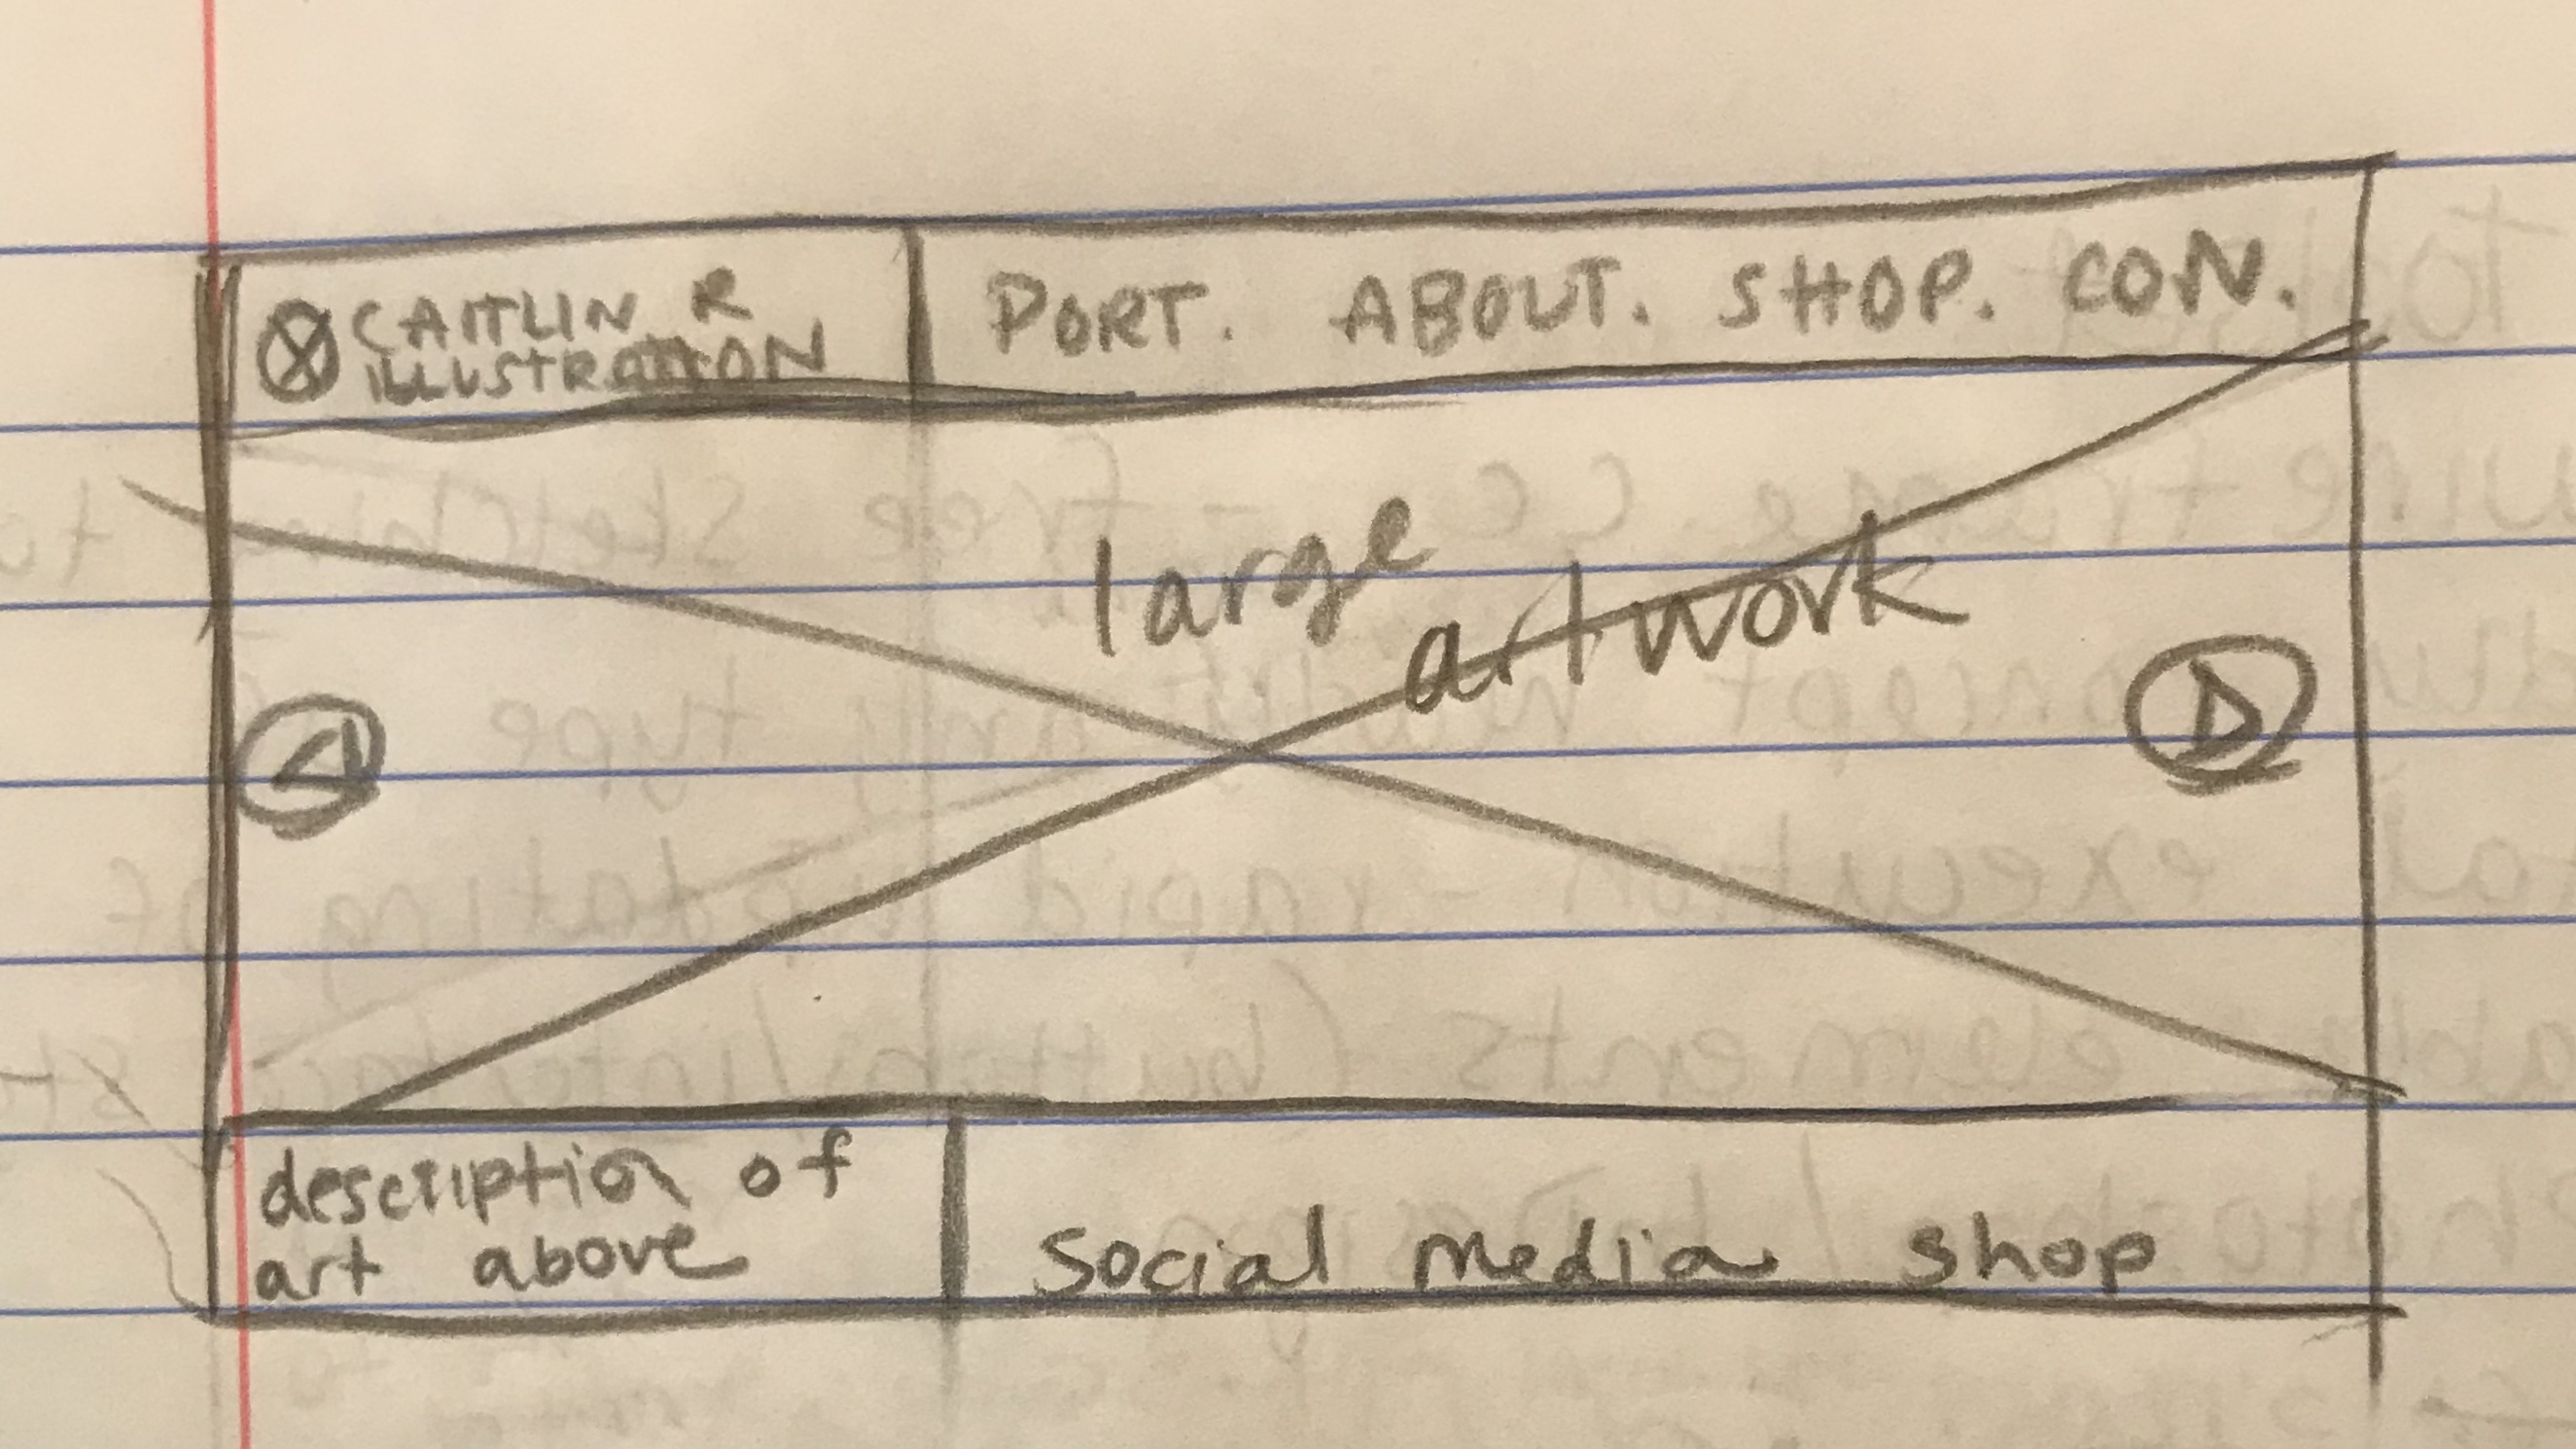 CAITLIN R
ILLUSTRATION
PORT. ABOUT. SHOP. CON.
large
artwork
description of
art above
Social Media shop